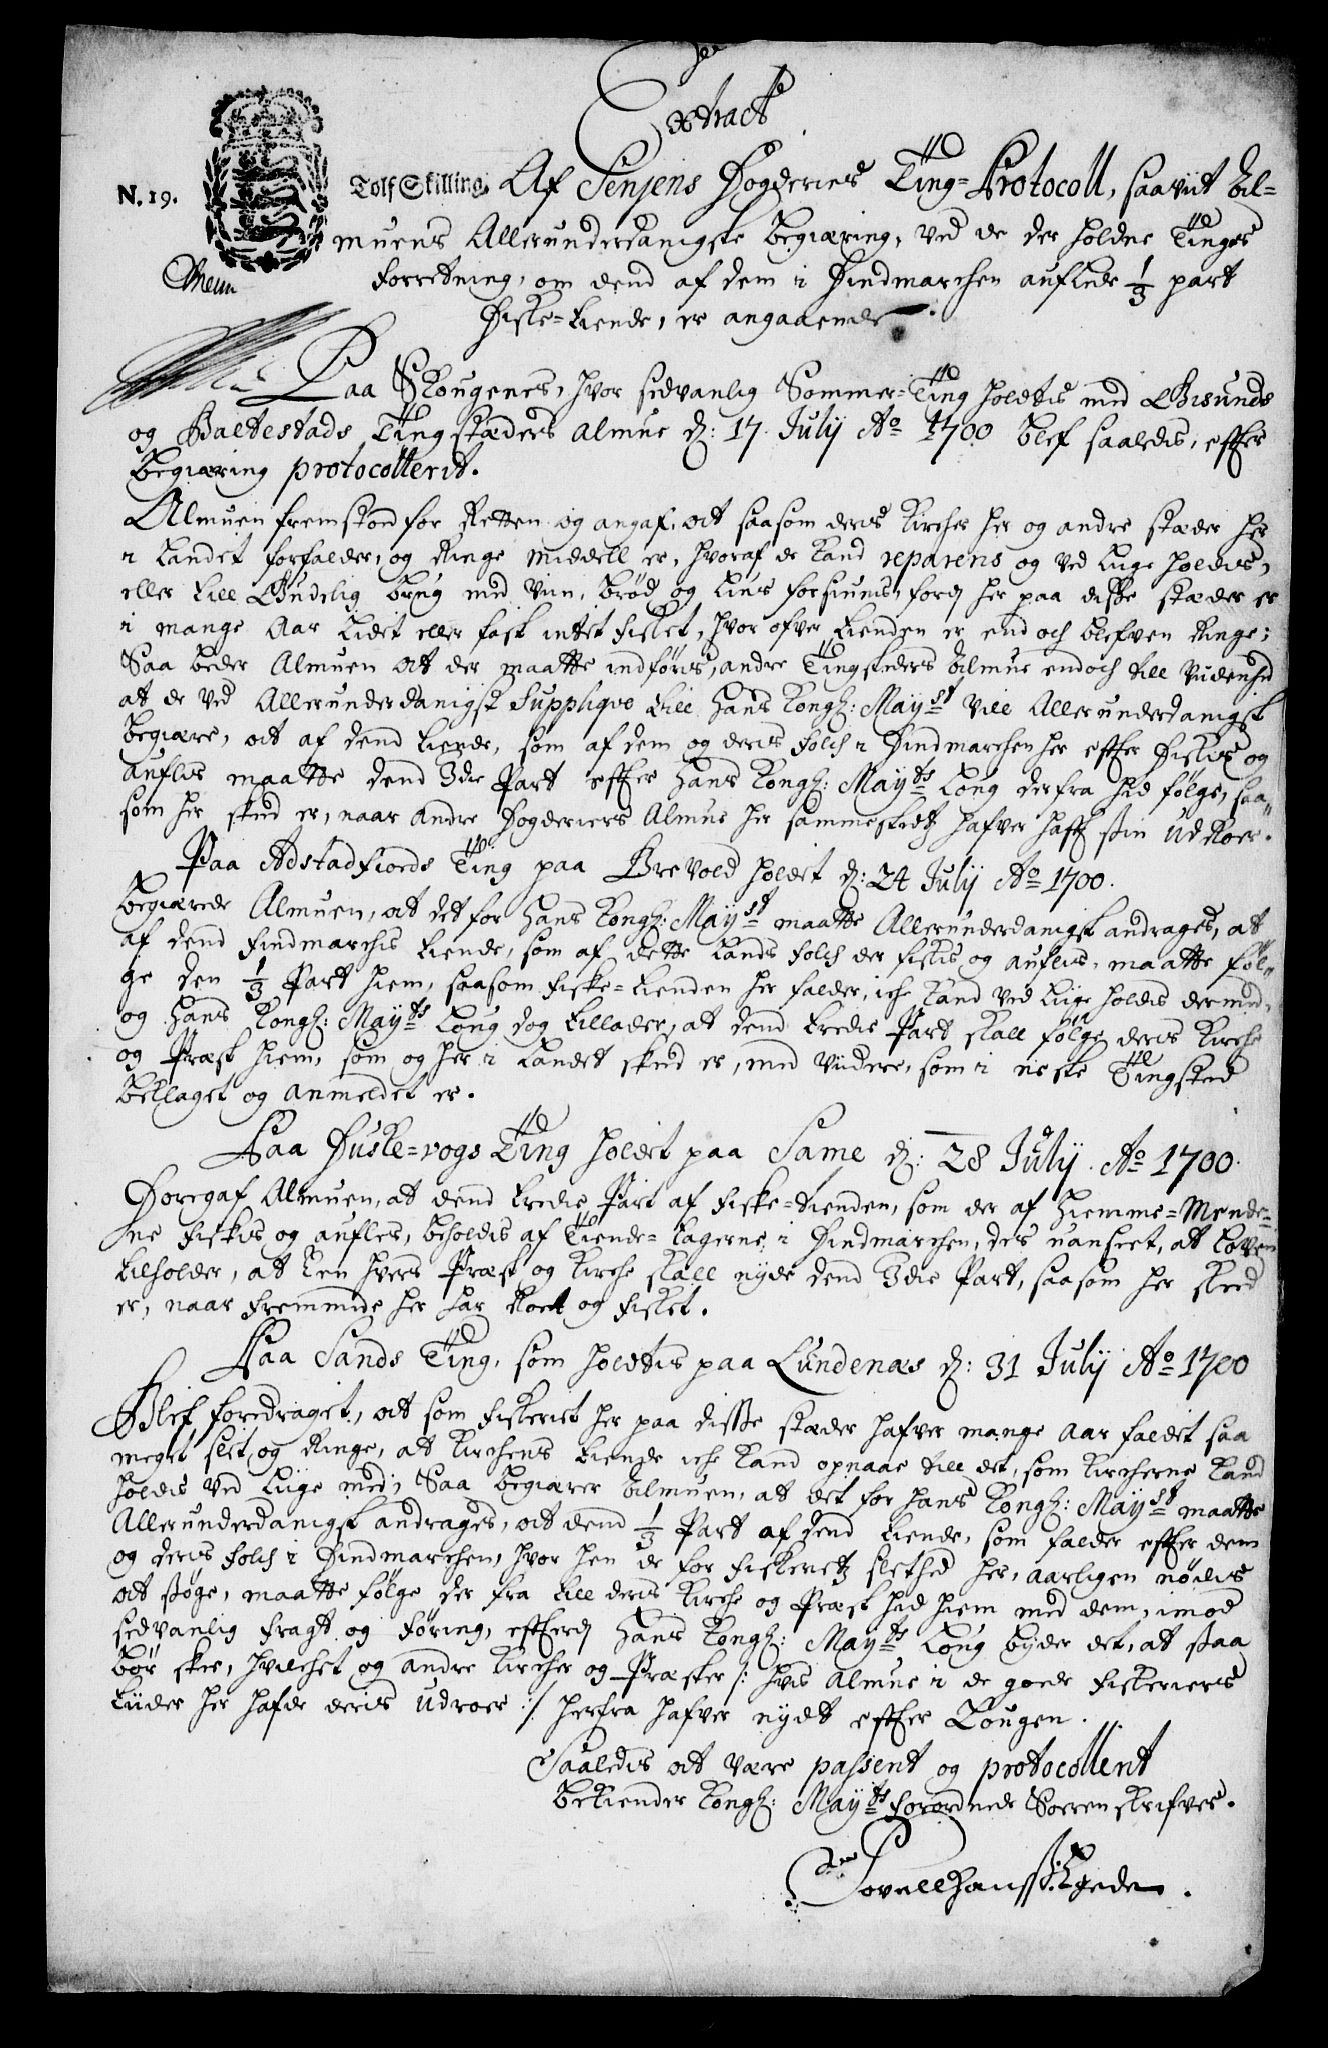 Extract
N. 19. Tolf Skilling. Af Senjens Fogderies Ting-Protocoll, saavit Al-
muens Allerunderdanigste begiæring, ved de der holdne Tinges
Forretning, om dend af dem i Findmarchen auflede 1/3 part
Fiske-tiende, er angaaende.
Paa Skougenes, hvor sedvanlig Sommer-Ting holdtis med Gisunds
og Baltestads Tingstæders almue d: 17 July Ao 1700 blef saaledis, efter
begiæring protocollerit.
Almuen fremstod for Retten og angaf, at saasom deris Kircher her og andre stæder her
i Landet forfalder, og Ringe middell er, hvoraf de kand repareris og ved lige holdis,
eller till Gudelig brug med Viin, brød og Lius forsiunis, fordj her paa disse stæder er
i mange Aar lidet eller fast intet fisket, hvor ofver tienden er end och blefven Ringe;
Saa beder Almuen at der maatte indføris, andre Tingsteders Almue endoch till Videnhed
at de ved Allerunderdanigst Suppliqve till Hans Kongl: Mayst vill Allerunderdanigst
begiære, at af dend tiende, som af dem og deris folch i Findmarchen her effter fiskis og
aufles maatte dend 3die Part effter Hans Kongl: Mayts Loug derfra hid følge, saa-
som her skud er, naar andre Fogderiers Almue her sammestedtz hafver hafft sin Ud Roer.
Paa Astafiords Ting paa Grevold holdet d: 24 July Ao 1700.
begiærede Almuen, at det for Hans Kongl: Mayst maatte Allerunderdanigst andrages, at
af dend Findmarchis tiende, som af dette Lands folch der fiskis og aufles, maatte føl-
ge den 1/3 Part hiem, saasom fiske-tienden her falder, iche kand ved lige holdis dermed,
og Hans Kongl: Mayts Loug dog tillader, at dend tredie Part skall følge deris Kirche
og Præst hiem, som og her i Landet skud er, med viidere, som i neste Tingsted
beklaget og anmeldet er.
Paa Fuske-vogs Ting holdet paa Same d: 28 July. Ao 1700.
Foregaf Almuen, at dend tredie Part af fiske-tienden, som der af Hiemme-Mende-
ne fiskis og aufles, beholdis af Tiende-tagerne i Findmarchen, des uanseet, at Loven
tilholder, at Een hvers Præst og Kirche skall nyde dend 3die Part, saasom her skeed
er, naar fremmede her har Roet og fisket.
Paa Sands Ting, som holdtis paa Lundenæs d: 31 July Ao 1700
Blef foredraget, at som fiskeriet her paa disse stæder hafver mange Aar faldet saa
meget slet og Ringe, at Kirchens tiende iche kand opnaae till det, som Kircherne kand
holdis ved liige med; Saa begiærer Almuen, at det for Hans Kongl: Mayst maatte
Allerunderdanigst andrages, at dend 1/3 Part af dend tiende, som falder effter dem
og deris folch i Findmarchen, hvor hen de for fiskerietz slethed her, aarligen nødis
at søge, maatte følge der fra till deris Kirche og Præst hid hiem med dem, imod
sedvanlig fragt og føring, effterdj Hans Kongl: Mayts Loug byder det, at saa
bør skee, hvilchet og andre Kircher og Præster /: hvis Almue i de goede fiskeriers
tiider her hafde deris Udroer :/ herfra hafver nydt effter Lougen.
Saaledis at være passerit og protocollerit
bekiender Kongl: Mayts forordnede Sorenskrifver.
Povell Hanssøn Egede.